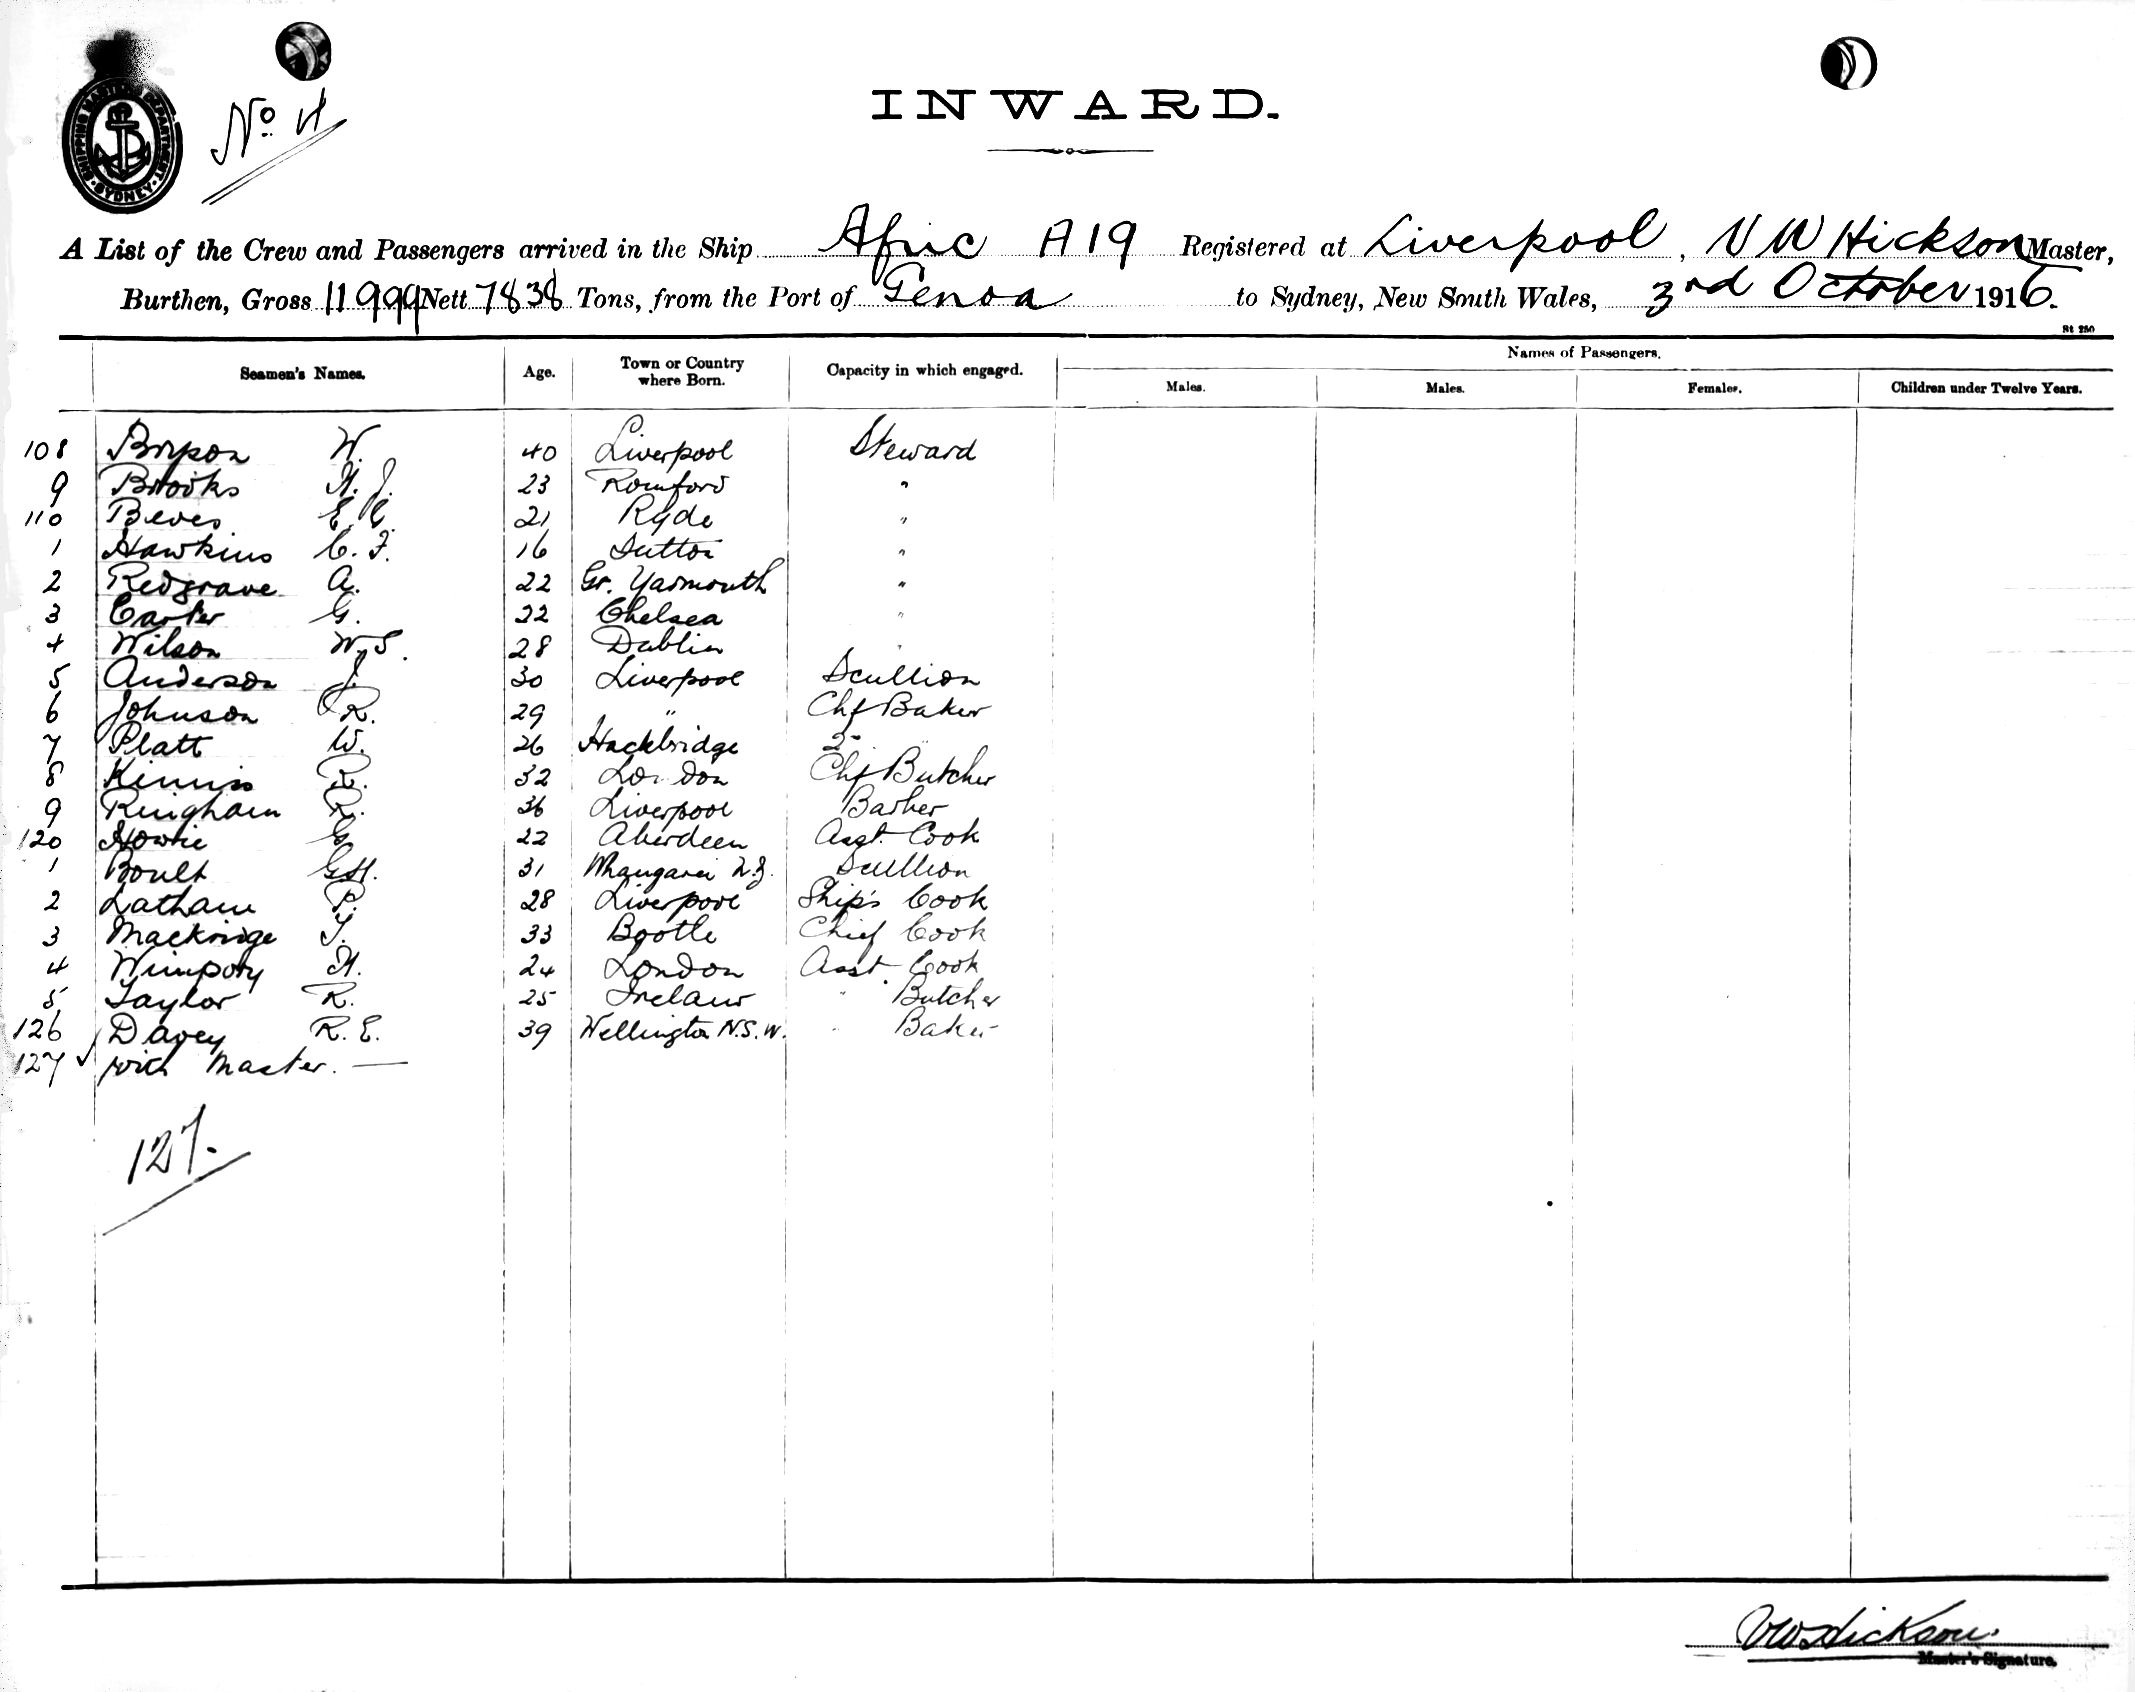 SHIPPING MASTER'S DEPARTMENT SYDNEY
No 4
INWARD.
A List of the Crew and Passengers arrived in the Ship Afric A19 Registered at Liverpool, V W Hickson Master,
Burthen, Gross 11999 Nett 7838 Tons, from the Port of Genoa to Sydney, New South Wales, 3rd October 1916.
St 250
Seamen's Names. Age. Town or Country where Born. Capacity in which engaged. Names of Passengers.
Males. Males. Females. Children under Twelve Years.
108 W. 40 Liverpool Steward
9 Brooks H. J. 23 Romford "
110 Beves E. C. 21 Ryde "
1 Hawkins C. F. 16 Sutton "
2 Redgrave A. 22 Gr. Yarmouth "
3 Carter G. 22 Chelsea "
4 Wilson W. S. 28 Dublin "
5 Anderson J. 30 Liverpool Scullion
6 Johnson R. 29 " Chf Baker
7 Platt W. 26 Hackbridge 2 "
8 R. 32 London Chf Butcher
9 Ringham R. 36 Liverpool Barber
120 Howie G. 22 Aberdeen Asst. Cook
1 Boult G.H. 31 Whangarei N.Z. Scullion
2 Latham P. 28 Liverpool Ship's Cook
3 Mackridge T. 33 Bootle Chief Cook
4 Wimpory H. 24 London Asst. Cook
5 Taylor R. 25 Ireland " Butcher
126 Davey R. E. 39 Wellington N.S.W. " Baker
127 ✓ with Master. —
127.
VW Hickson.
Master's Signature.